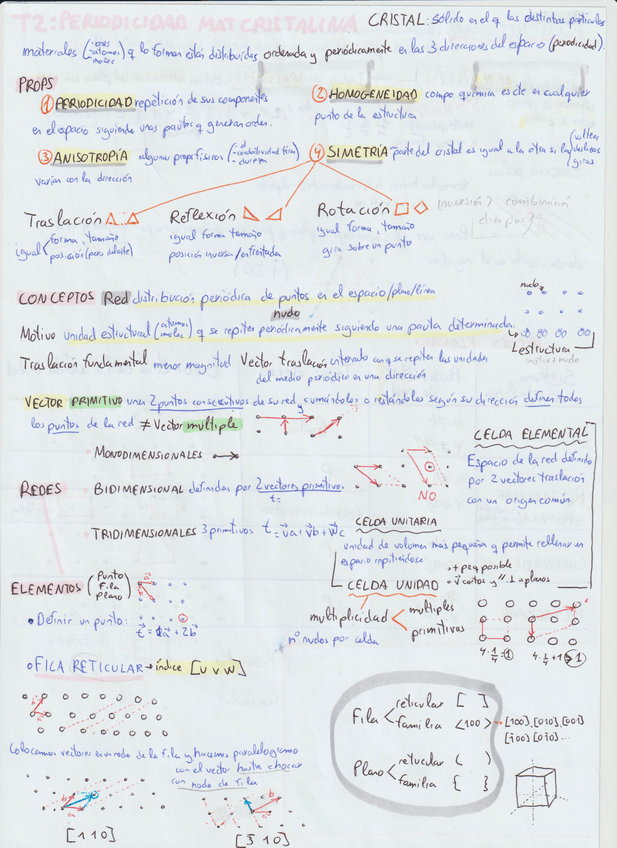 T2: PERIODICIDAD MAT CRISTALINA CRISTAL: sólido en el q las distintas partículas
materiales (-iones -átomos -molec) q lo forman están distribuidas ordenada y periódicamente en las 3 direcciones del espacio (periodicidad).
PROPS
① PERIODICIDAD repetición de sus componentes
en el espacio siguiendo unas pautas q generan orden.
② HOMOGENEIDAD compo química es cte en cualquier
punto de la estructura
③ ANISOTROPÍA algunas props físicas (-d -conductividad térm -dureza)
varían con la dirección
④ SIMETRÍA parte del cristal es igual a la otra si la voltear deslizas giras
Traslación
igual forma, tamaño
posición (pero delante)
Reflexión
igual forma tamaño
posición inversa/enfrentada
Rotación
igual forma, tamaño
gira sobre un punto
inversión? combinación
CONCEPTOS Red distribución periódica de puntos en el espacio/plano/línea
nudo
nudo
Motivo unidad estructural (átomos molec) q se repiten periódicamente siguiendo una pauta determinada.
estructura
motivo + nudo
Traslación fundamental menor magnitud Vector traslación intervalo con q se repiten las unidades
del medio periódico en una dirección
VECTOR PRIMITIVO une 2 puntos consecutivos de su red y sumándolos o restándolos según su dirección definen todos
los puntos de la red ≠ Vector multiple
REDES
MONODIMENSIONALES
BIDIMENSIONAL definidas por 2 vectores primitivos
t=
NO
TRIDIMENSIONALES 3 primitivos t = ua + vb + wc
CELDA ELEMENTAL
Espacio de la red definido
por 2 vectores traslación
con un origen común
CELDA UNITARIA
unidad de volumen más pequeña q permite rellenar un
espacio repitiéndose
CELDA UNIDAD
+ peq posible
V cortos y // ⊥ a planos
multiplicidad
nº nudos por celda
multiples
primitivos
4·1/4=1
4·1/4+1>1
ELEMENTOS (Punto Fila Plano
• Definir un punto:
t = 1a + 2b
• FILA RETICULAR → índice [u v w]
b
a
Colocamos vectores en un nodo de la fila y hacemos paralelogramo
con el vector hasta chocar
con nodo de fila
b
a
b
a
[1 1 0]
[3̄ 1 0]
Fila
reticular [ ]
familia <100> → [100], [010], [001]
[1̄00] [01̄0]...
Plano
reticular ( )
familia { }